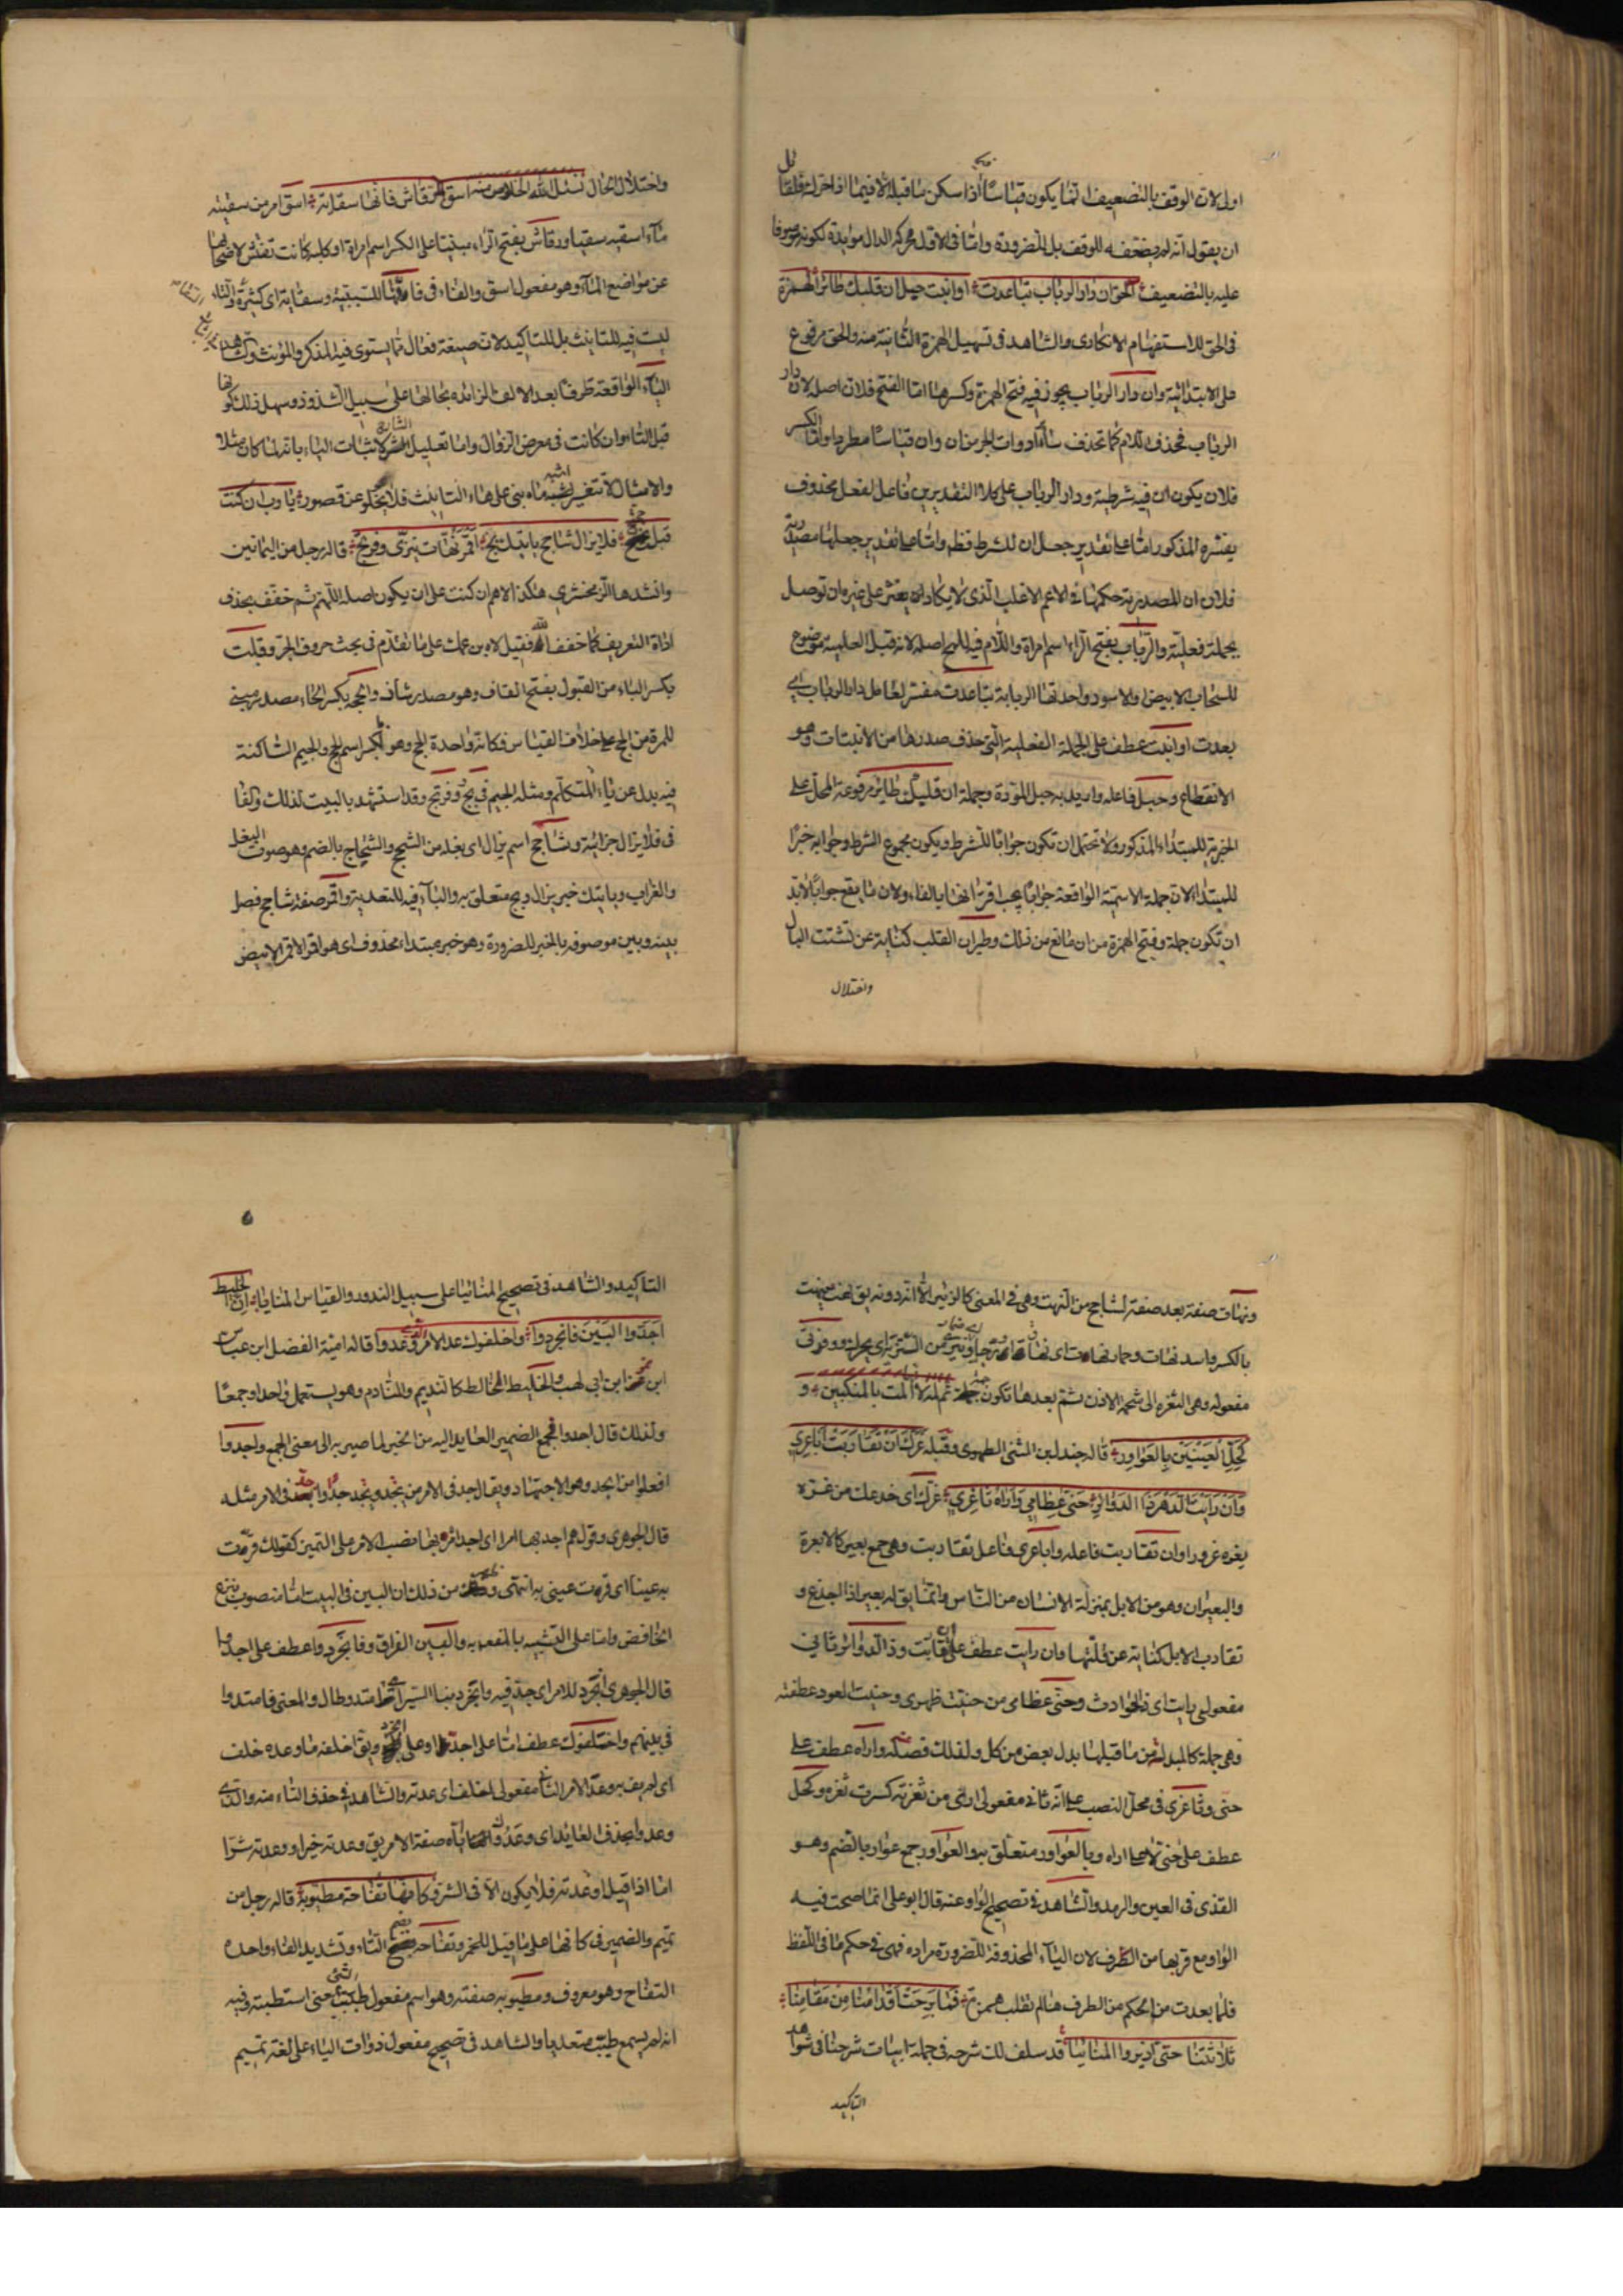 اولى لان الوقف بالتضعيف انما يكون قياسا اذا سكن ما قبله لا فيما اذا تحرك فلقائل
ان يقول انه لم يضعفه للوقف بل للضرورة واما في الاول محركة الدال مؤيدة لكونه موقوفا
عليه بالتضعيف أالحق ان دار الرباب تباعدت او انبت حبل ان قلبك طائر الهمزة
في الحق للاستفهام الانكاري والشاهد في تسهيل الهمزة الثانية منه والحق مرفوع
على الابتدائية وان دار الرباب يجوز فيه فتح الهمزة وكسرها اما الفتح فلان اصله لان دار
الرباب فحذف اللام كما تحذف سائر ادوات الجر من ان وان قياسا مطردا واما الكسر
فلان يكون ان فيه شرطية ودار الرباب على كلا التقديرين فاعل لفعل محذوف
يفسره المذكور اما على تقدير جعل ان للشرط فظ واما على تقدير جعلها مصدرية
فلان ان المصدرية حكمها في الاعم الاغلب الذي لا يكاد ان يعثر على غيره ان توصل
بجملة فعلية والرباب بفتح الراء اسم امراة واللام فيه للمح اصله لانه قبل العلمية موضوع
للسحاب الابيض او الاسود واحدتها الربابة تباعدت مفسر لعامل دار الرباب اي
بعدت او انبت عطف على الجملة الفعلية التي حذف صدرها من الانبتات وهو
الانقطاع وحبل فاعله واريد به حبل المودة وجملة ان قلبك طائر مرفوعة المحل على
الخبرية للمبتداء المذكور ولا تحتمل ان تكون جوابا للشرط ويكون مجموع الشرط وجوابه خبرا
للمبتداء لان جملة الاسمية الواقعة جوابا يجب اقترانها بالفاء ولان ما يقع جوابا لابد
ان تكون جملة وفتح الهمزة من ان مانع من ذلك وطيران القلب كناية عن تشتت البال
واختلال
واختلال الحال نسئل الله الخلاص منه اسق رقاش فانها سقاية اسق امر من سقيته
ماء اسقيه سقيا ورقاش بفتح الراء مبنيا على الكسر اسم امراة او كلبة كانت تفتش لاصحابها
عن مواضع الماء وهو مفعول اسق والفاء في فانها للسببية وسقاية اي كثيرة والتاء
ليست فيه للتانيث بل للتاكيد لان صيغة فعال مما يستوي فيه المذكر والمؤنث والشاهد
الياء الواقعة طرفا بعد الالف الزائدة بحالها على سبيل الشذوذ وسهل ذلك كونها
قبل التاء وان كانت في معرض الزوال واما تعليل الشارح لاثبات الياء بانه لما كان مثلا
والامثال لا تتغير اشبه ما بني على هاء التانيث فلا يخلو عن قصور يا رب ان كنت
قبلت حجتج فلا يزال شاحج ياتيك بج اقمر نهات ينزي وفرتج قاله رجل من اليمانين
وانشدها الزمخشري هكذا لاهم ان كنت على ان يكون اصله اللهم ثم خفف بحذف
اداة التعريف كما خفف لله فقيل لاه بن عمك على ما تقدم في بحث حروف الجر وقبلت
بكسر الباء من القبول بفتح القاف وهو مصدر شاذ وحجة بكسر الحاء مصدر مبني
للمرة من الحج على خلاف القياس فكانه واحدة الحج وهو بالكسر اسم للحج والجيم الساكنة
فيه بدل عن ياء المتكلم ومثله الجيم في بج وفرتج وقد استشهد بالبيت لذلك والفاء
في فلا يزال جزائية وشاحج اسم يزال اي بغل من الشحج والشحاج بالضم وهو صوت البغل
والغراب وياتيك خبر يزال وبج متعلق به والباء فيه للتعدية واقمر صفة شاحج فصل
بينه وبين موصوفه بالخبر للضرورة وهو خبر مبتداء محذوف اي هو اقمر الاقمر الابيض
ونهات صفة بعد صفة لشاحج من النهت وهي في المعنى كالزئير الا انه دونه يق نهت ينهت
بالكسر واسد نهات وحمار نهات اي نهاق وينزي من التنزية اي يحرك ووفرتي
مفعوله وهي الشعرة الى شحمة الاذن ثم بعدها تكون جمة ثم لمة اذا المت بالمنكبين و
كحل العينين بالعواور قاله جندل بن المثنى الطهوي وقبله غرك ان تقاربت اباعري
وان رايت الدهر ذا الدوائر حنى عظامي واراه ثاغري غرك اي خدعك من غره
يغره غرورا وان تقاربت فاعله واباعري فاعل تقاربت وهي جمع بعير كالابعرة
والبعران وهو من الابل بمنزلة الانسان من الناس وانما يق له بعير اذا اجذع و
تقارب الابل كناية عن قلتها وان رايت عطف على ان تقاربت وذا الدوائر ثاني
مفعولي رايت اي ذا الحوادث وحنى عظامي من حنيت ظهري وحنيت العود عطفته
وهي جملة كالمبدلة من ما قبلها بدل بعض من كل ولذلك فصله واراه عطف على
حنى وثاغري في محل النصب على انه ثاني مفعولي ارى من ثغرته كسرت ثغره وكحل
عطف على حنى لا على اراه وبالعواور متعلق به والعواور جمع عوار بالضم وهو
القذى في العين والرمد والشاهد في تصحيح الواو عنه قال ابو علي انما صحت فيه
الواو مع قربها من الطرف لان الياء المحذوفة للضرورة مراده فهي في حكم ما في اللفظ
فلما بعدت من الحكم من الطرف هنا لم تقلب همزة فما برحت اقدامنا من مقامنا
ثلاثتنا حتى ازيروا المنائيا قد سلف لك شرحه في جملة ابيات شرحنا في شواهد
التاكيد
التاكيد والشاهد في تصحيح المنائيا على سبيل الندور والقياس المنايا ان الخليط
اجدوا البين فانجردوا واخلفوك عد الامر الذي وعدوا قاله امية الفضل ابن عباس
ابن ابي لهب والخليط المخالط كالنديم والمنادم وهو يستعمل واحدا وجمعا
ولذلك قال اجدوا فجمع الضمير العايد اليه من الخبر لما صير به الى معنى الجمع واجدوا
افعلوا من الجد وهو الاجتهاد ويقال جد في الامر من يجد ويجد جدا واجد في الامر مثله
قال الجوهري وقولهم اجد بها امرا اي اجد امره بها نصب الامر على التميز كقولك قررت
به عينا اي قرت عيني به انتهى وظهر من ذلك ان البين في البيت اما منصوب بنزع
الخافض واما على التشبيه بالمفعول به والبين الفراق وفانجردوا عطف على اجدوا
قال الجوهري انجرد للامر اي جد فيه وانجرد بنا السير اي امتد وطال والمعنى فامتدوا
في بينهم واخلفوك عطف اما على اجدوا او على انجرد ويق اخلفه ما وعده خلف
اي لم يف به وعد الامر الثاني مفعولي اخلف اي عدته والشاهد في حذف التاء منه والذي
وعدوا بحذف العايد اي وعدوك اياه صفة الامر يق وعدته خيرا ووعدته شرا
اما اذا قيل اوعدته فلا يكون الا في الشر وكانها تفاحة مطيوبة قاله رجل من
تميم والضمير في كانها على ما قيل للخمر وتفاحة بضم التاء وتشديد الفاء واحدة
التفاح وهو معروف ومطيوبة صفته وهو اسم مفعول طيبت الشئ حتى استطبته وفيه
انه لم يسمع طيبت متعديا والشاهد في تصحيح مفعول ذوات الياء على لغة تميم